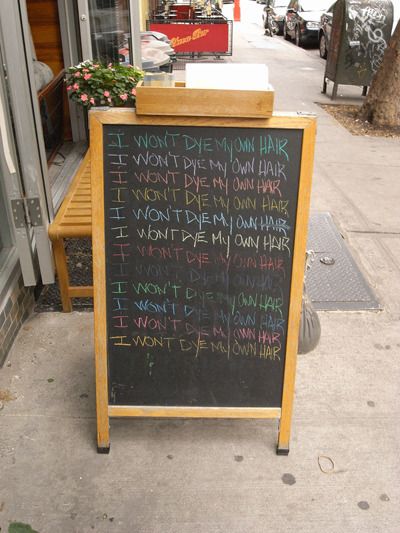 I WON'T DYE MY OWN HAIR
I WON'T DYE MY OWN HAIR
I WON'T DYE MY OWN HAIR
I WON'T DYE MY OWN HAIR
I WON'T DYE MY OWN HAIR
I WONT DYE MY OWN HAIR
I WON'T DYE MY OWN HAIR
I WON'T DYE MY OWN HAIR
I WON'T DYE MY OWN HAIR
I WON'T DYE MY OWN HAIR
I WON'T DYE MY OWN HAIR
I WONT DYE MY OWN HAIR